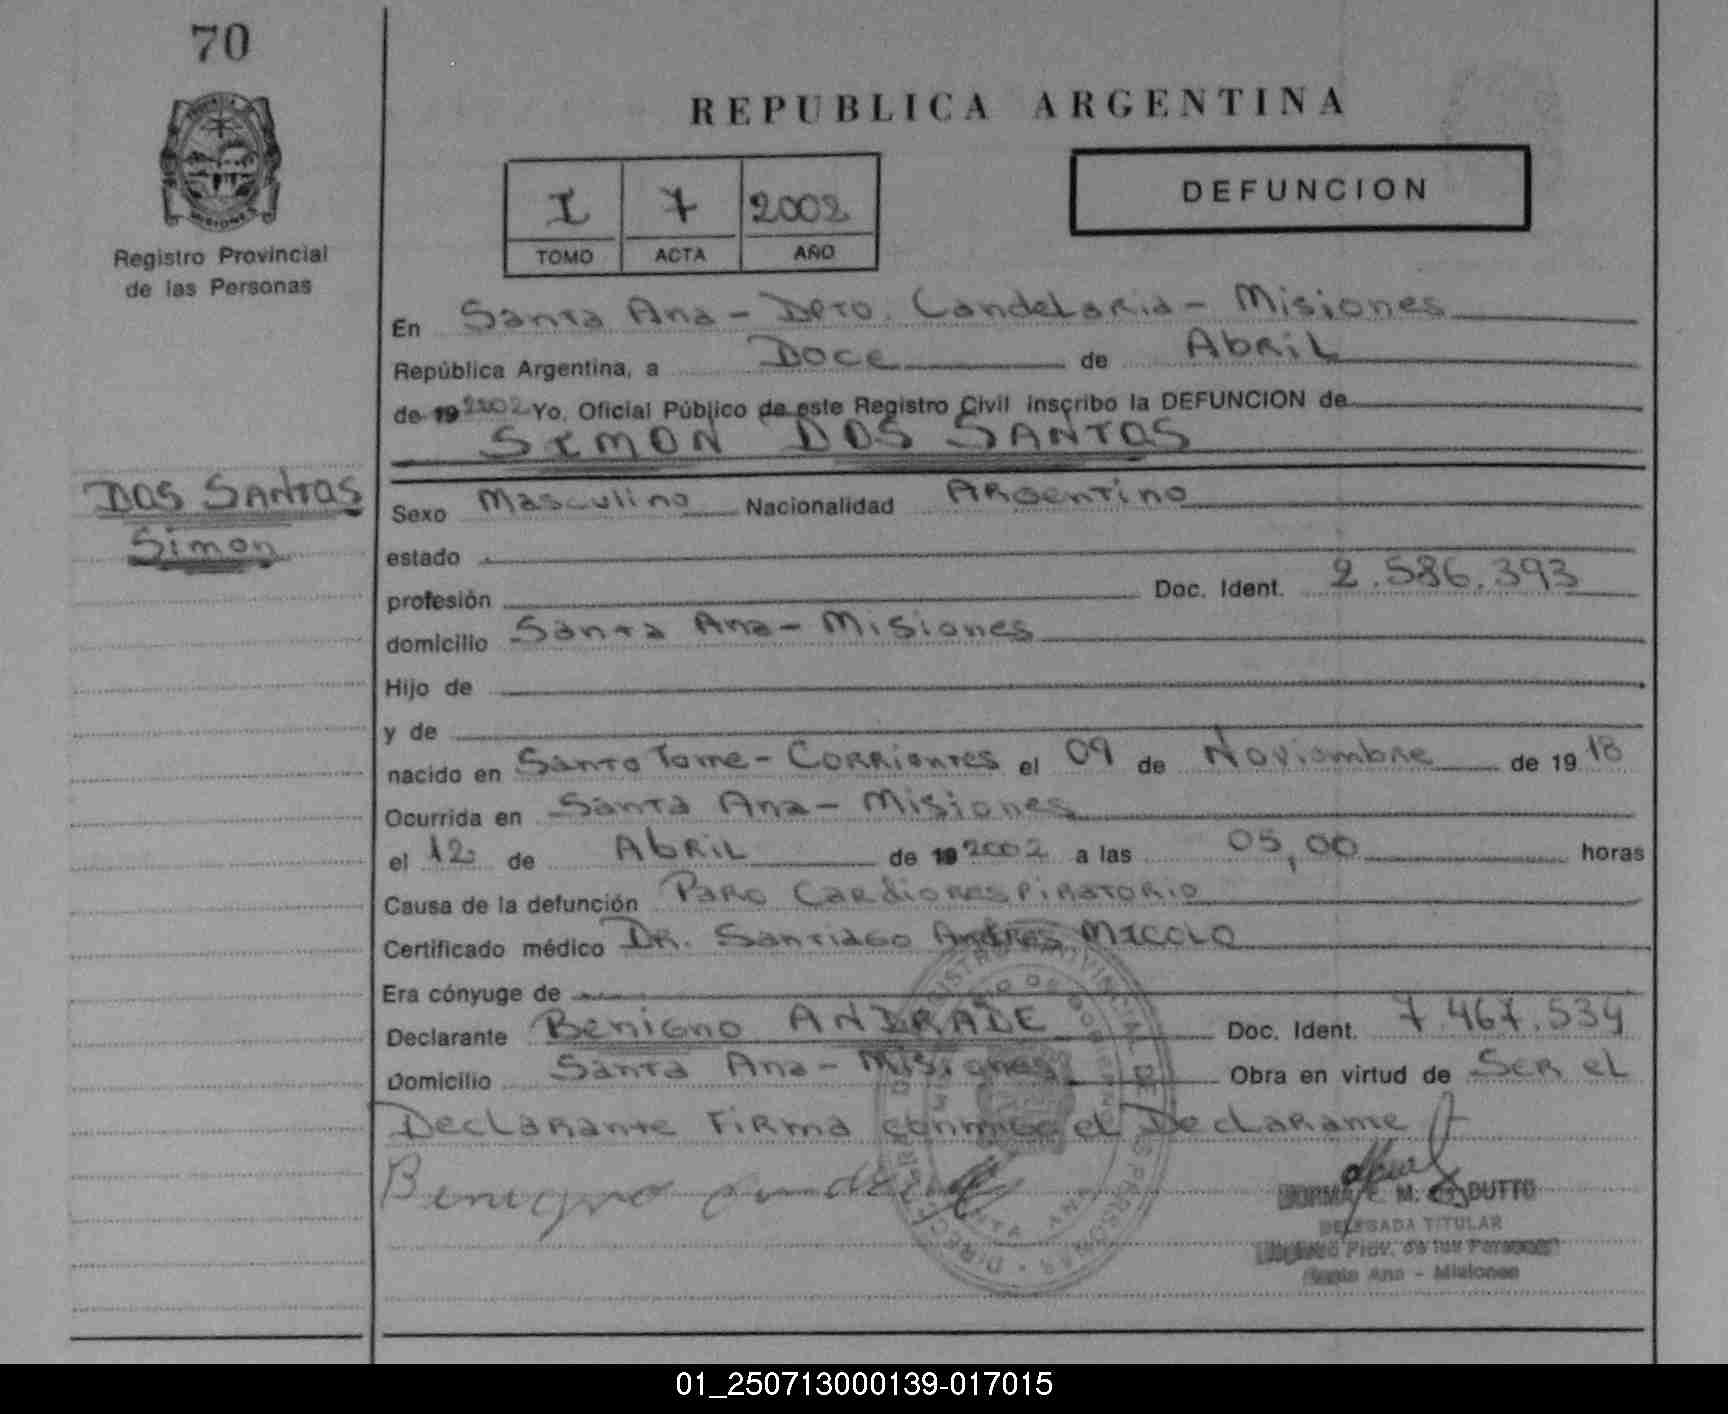 70
REPUBLICA ARGENTINA
MISIONES
Registro Provincial
de las Personas
I 7 2002
TOMO ACTA AÑO
DEFUNCION
En Santa Ana - Dpto. Candelaria - Misiones
República Argentina, a Doce de Abril
de 19 2002 Yo, Oficial Público de este Registro Civil inscribo la DEFUNCION de
SIMON DOS SANTOS
DOS SANTOS
Simon
Sexo Masculino Nacionalidad Argentino
estado
profesión Doc. Ident. 2.586.393
domicilio Santa Ana - Misiones
Hijo de
y de
nacido en Santo Tome - Corrientes el 09 de Noviembre de 19 18
Ocurrida en Santa Ana - Misiones
el 12 de Abril de 19 2002 a las 05,00 horas
Causa de la defunción Paro Cardiorespiratorio
Certificado médico Dr. Santiago Andres MICOLO
Era cónyuge de
Declarante Benigno ANDRADE Doc. Ident. 7.467.534
Domicilio Santa Ana - Misiones Obra en virtud de Ser el
Declarante Firma conmigo el Declarante
Benigno
NORMA E. M. DUTTO
DELEGADA TITULAR
Prov. de las Personas
Santa Ana - Misiones
01_250713000139-017015